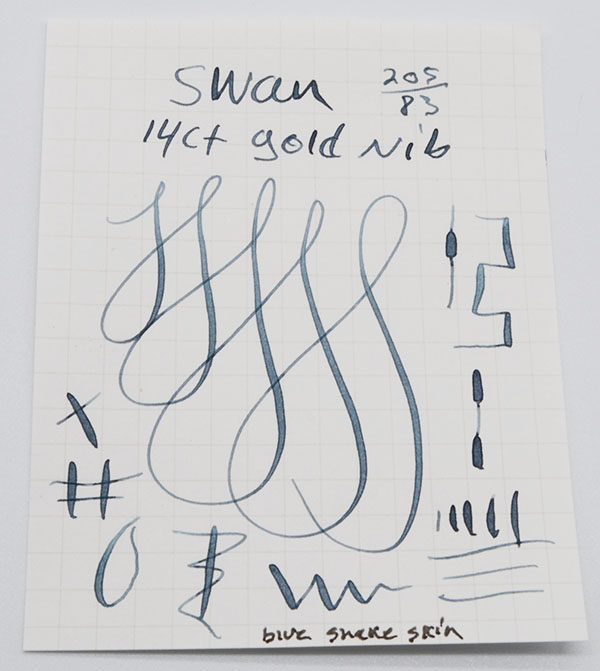 Swan 205/83
14ct gold Nib
blue snake skin